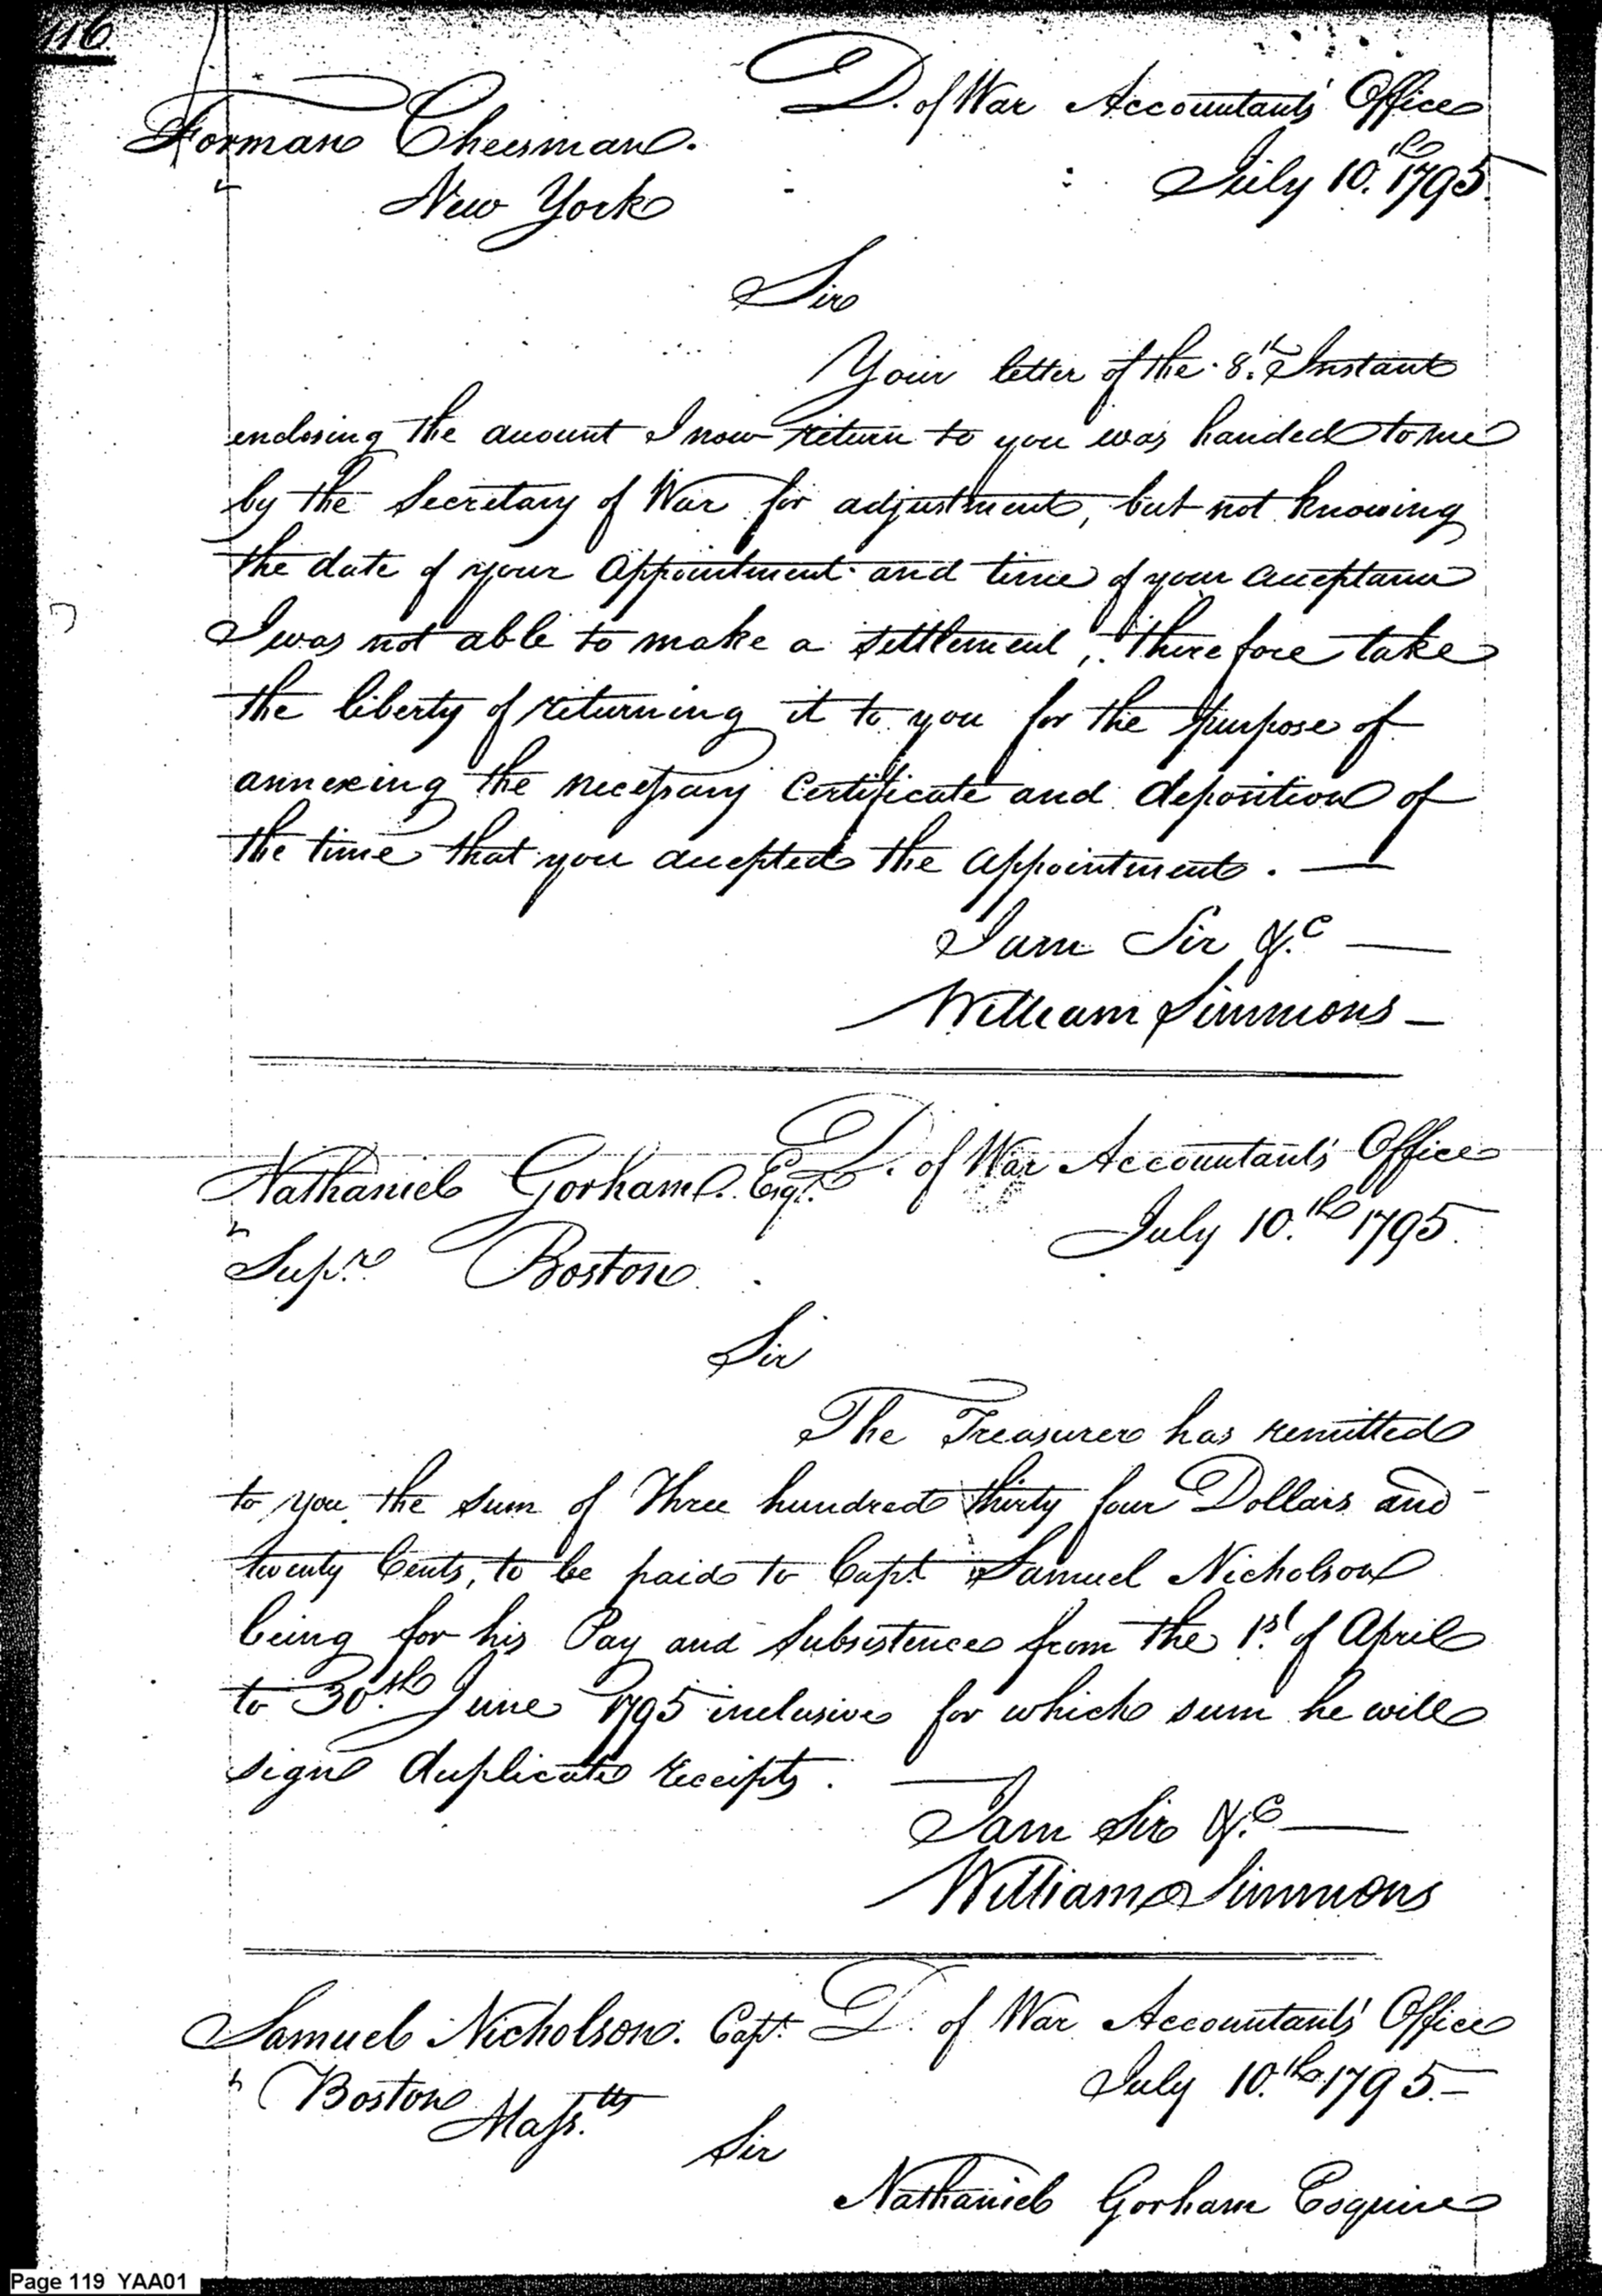 116
D. of War Accountants' Office
Forman Cheesman.
July 10.th 1795.
New York
Sir
Your letter of the 8.th Instant
enclosing the account I now return to you was handed to me
by the Secretary of War for adjustment, but not knowing
the date of your appointment and time of your acceptance
I was not able to make a settlement, therefore take
the liberty of returning it to you for the purpose of
annexing the necessary Certificate and deposition of
the time that you accepted the appointment. —
I am Sir &.c —
William Simmons —
D. of War Accountants' Office
Nathaniel Gorham. Esqr.
July 10.th 1795.
Supr. Boston
Sir
The Treasurer has remitted
to you the sum of Three hundred thirty four Dollars and
twenty Cents, to be paid to Capt. Samuel Nicholson
being for his Pay and Subsistence from the 1.st of April
to 30.th June 1795 inclusive for which sum he will
sign duplicate receipts. —
I am Sir &.c —
William Simmons
Samuel Nicholson. Capt. D. of War Accountants' Office
Boston July 10.th 1795. —
Mass.tts
Sir
Nathaniel Gorham Esquire
Page 119 YAA01